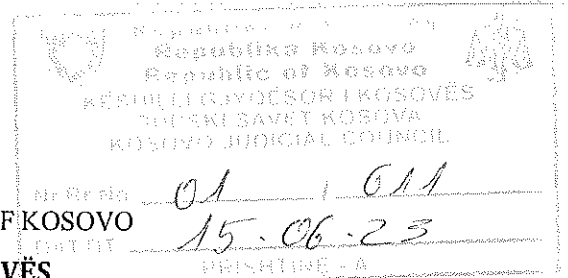 Republika Kosovo
Republic of Kosovo
KËSHILLI GJYQËSOR I KOSOVËS
SUDSKI SAVET KOSOVA
KOSOVO JUDICIAL COUNCIL
Nr Br No 01 / 611
F KOSOVO
DAT DT 15-06-23
VËS
PRISHTINË - A